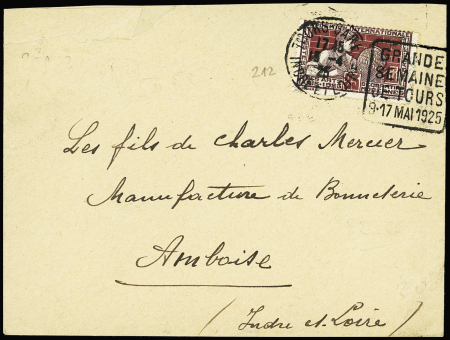 212
GRANDE
SEMAINE
DE TOURS
9-17 MAI 1925
Les fils de Charles Mercier
Manufacture de Bonneterie
Amboise
(Indre et Loire)